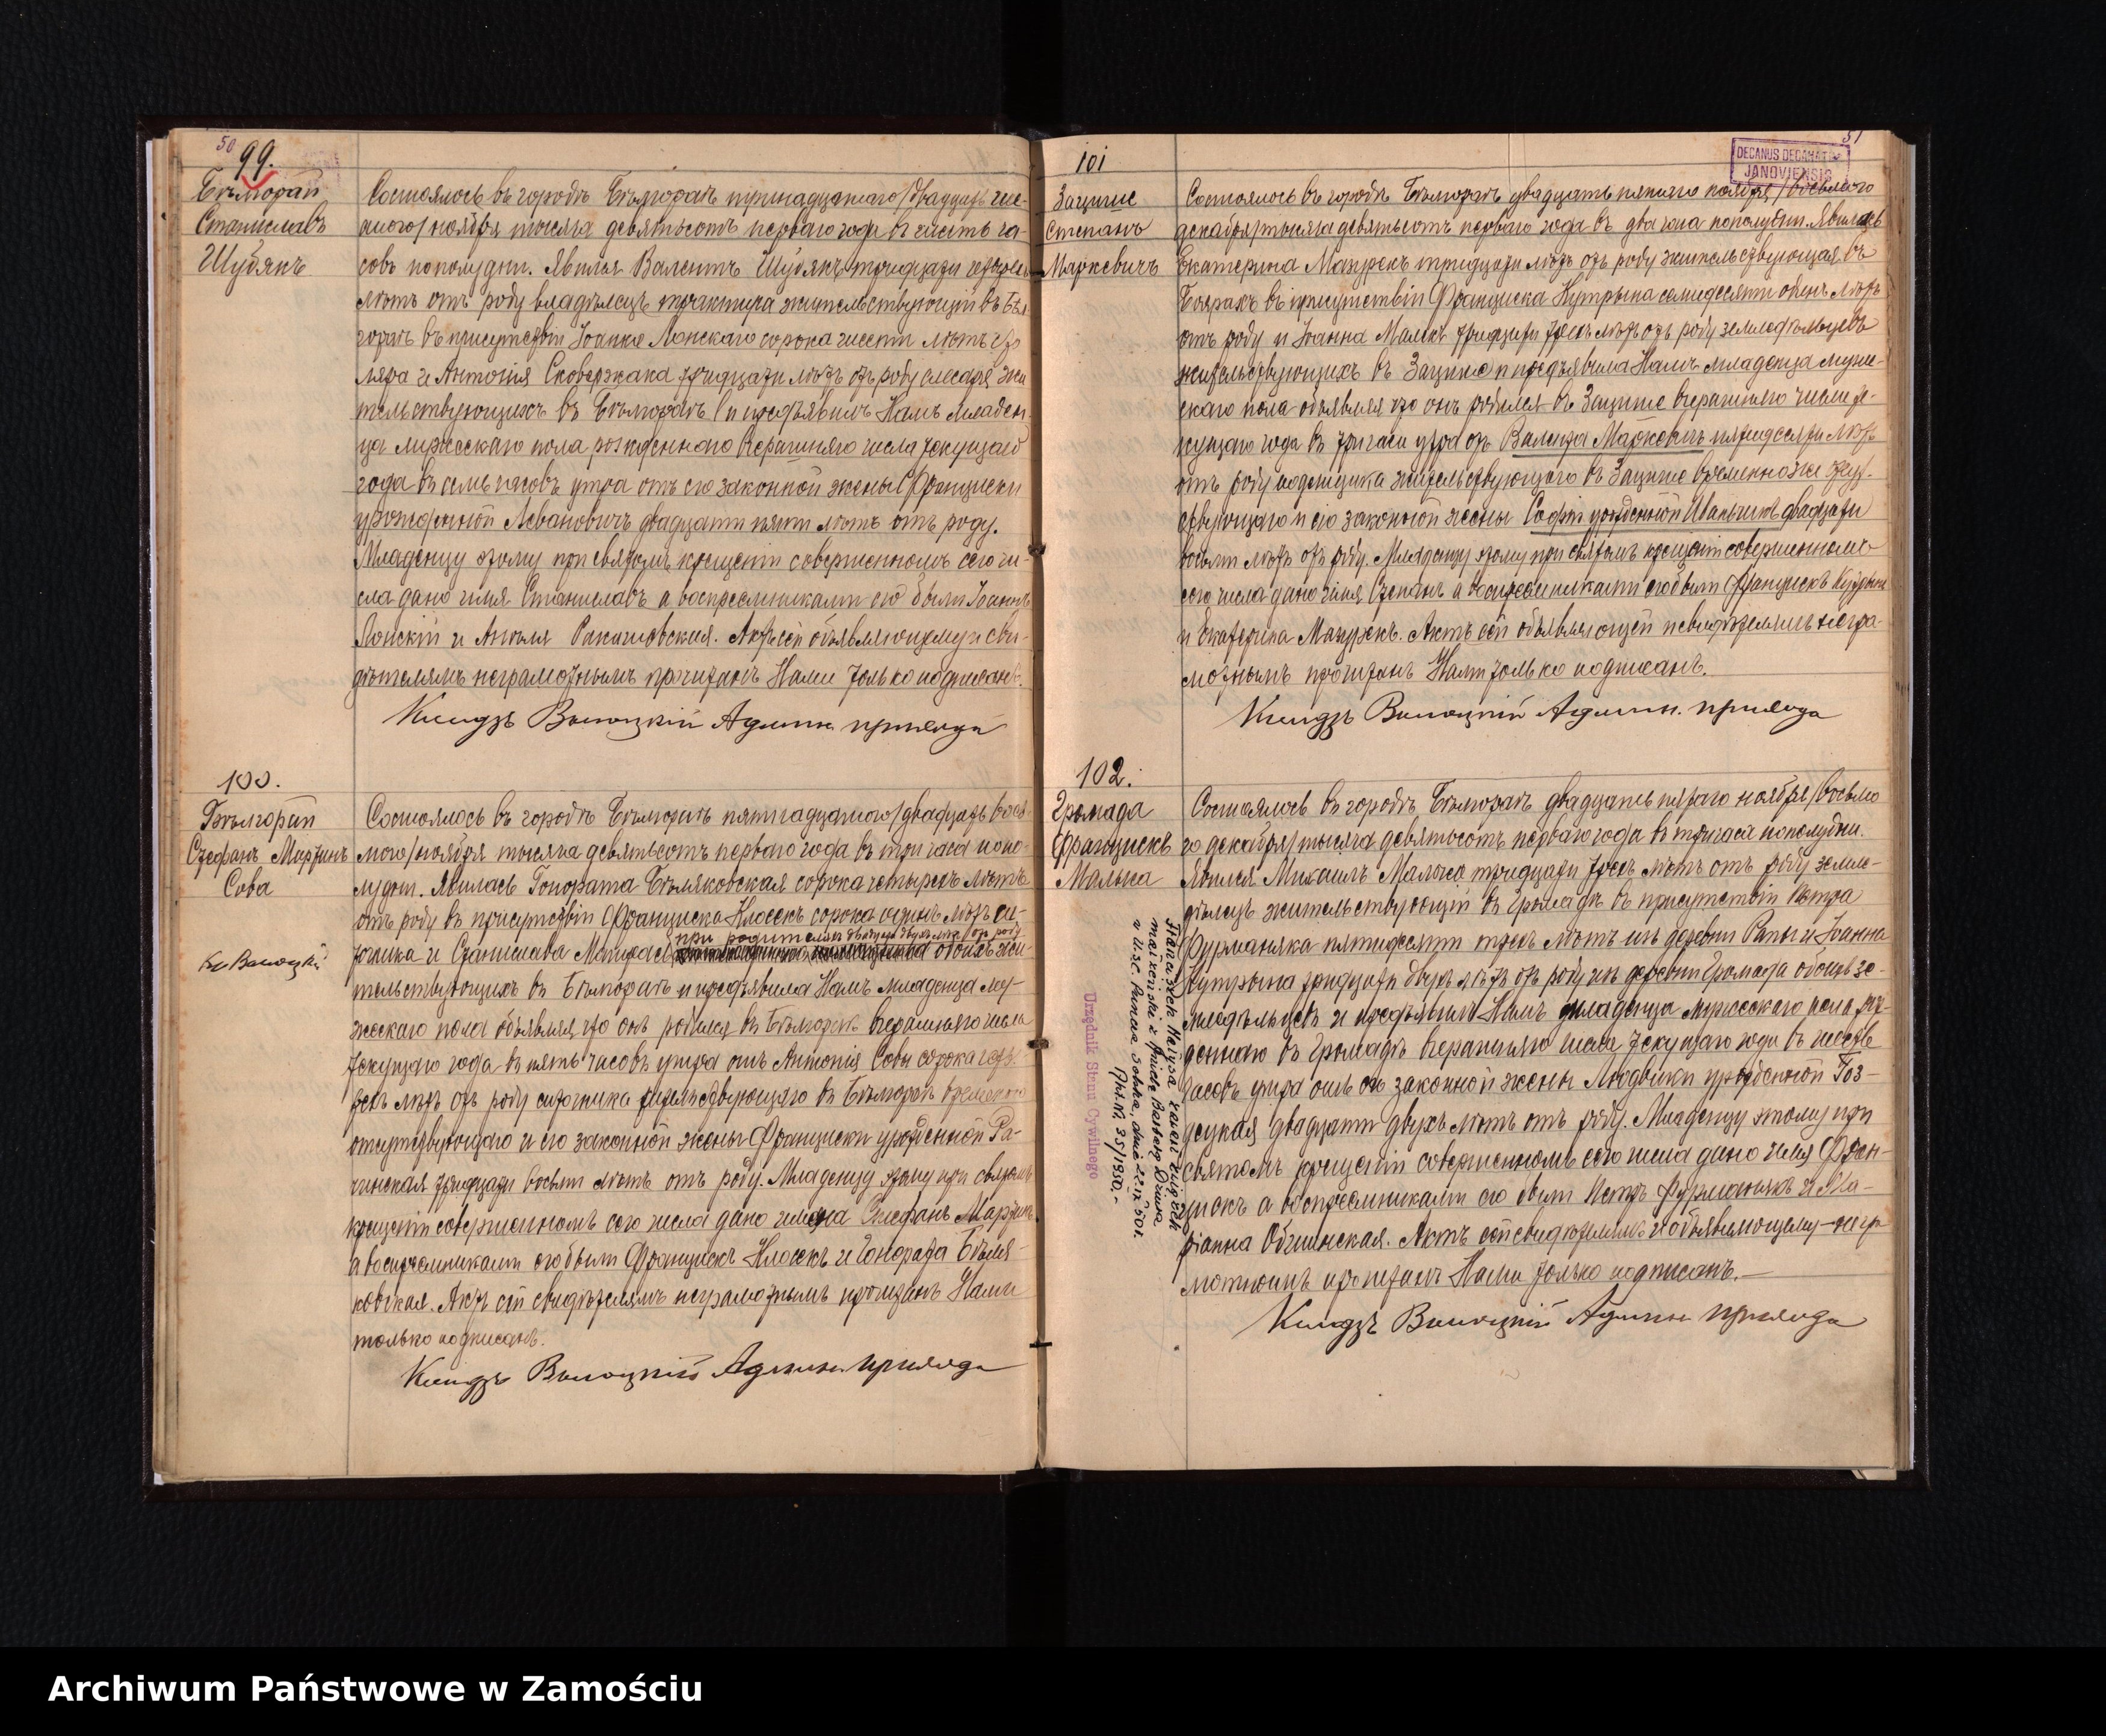 50
99.
Бѣлгорай
Станиславъ
Шубякъ
Состоялось въ городѣ Бѣлгораѣ тринадцатого/двадцать шес-
таго/ноября тысяча девятьсотъ перваго года въ шесть ча-
совъ пополудни. Явился Валентъ Шубякъ тридцати
лѣтъ отъ роду владѣлецъ трактира жительствующій въ Бѣл
гораѣ въ присутствіи Іоанна Лонскаго сорока шести лѣтъ
и Антонія Сковержака тридцати лѣтъ отъ роду слесаря жи
тельствующихъ въ Бѣлгораѣ и предъявилъ Намъ младен
ца мужескаго пола рожденнаго вчерашняго числа текущаго
года въ семь часовъ утра отъ его законной жены Францишки
урожденной двадцати пяти лѣтъ отъ роду.
Младенцу этому при святомъ крещеніи совершенномъ сего чи-
сла дано имя Станиславъ а воспреемниками его были Іоаннъ
Лонскій и Ангеля. Актъ сей объявляющему и сви-
дѣтелямъ неграмотнымъ прочитанъ Нами только подписанъ.
Ксендзъ Высоцкій Админ. прихода
100.
Бѣлгорай
Стефанъ Мартинъ
Сова
Кс Высоцкій
Состоялось въ городѣ Бѣлгораѣ пятнадцатого/двадцать вось
мого/ноября тысяча девятьсотъ перваго года въ три часа попо-
лудни. Явилась Гонората Бѣляковская сорока четырехъ лѣтъ
отъ роду въ присутствіи Франциска Клосекъ сорока одинъ лѣтъ си-
при родителяхъ двадцать двухъ лѣтъ отъ роду
точника и Станислава обоихъ жи-
тельствующихъ въ Бѣлгораѣ и предъявила Намъ младенца му-
жескаго пола объявляя что онъ родился въ Бѣлгораѣ вчерашняго числа
текущаго года въ пять часовъ утра отъ Антонія Совы сорока четы-
рехъ лѣтъ отъ роду ситочника жительствующаго въ Бѣлгораѣ временно
отсутствующаго и его законной жены Францишки урожденной Ра-
чинская тридцати восьми лѣтъ отъ роду. Младенцу этому при святомъ
крещеніи совершенномъ сего числа дано имена Стефанъ Мартинъ
а воспреемниками его были Францискъ Клосекъ и Гонората Бѣля-
ковская. Актъ сей свидѣтелямъ неграмотнымъ прочитанъ Нами
только подписанъ.
Ксендзъ Высоцкій Админ. прихода
51
DECANUS DECANATUS
JANOVIENSIS
101
Зацише
Степанъ
Маркевичъ
Состоялось въ городѣ Бѣлгораѣ двадцать пятаго ноября/восьмого
декабря/тысяча девятьсотъ перваго года въ два часа пополудни. Явилась
Екатерина Мазурекъ тридцати лѣтъ отъ роду жительствующая въ
Боярахъ въ присутствіи Франциска Кутрына семидесяти одинъ лѣтъ
отъ роду и Іоанна Малекъ тридцати трехъ лѣтъ отъ роду земледѣльцевъ
жительствующихъ въ Зацише и предъявила Намъ младенца муже-
скаго пола объявляя что онъ родился въ Зацише вчерашняго числа те-
кущаго года въ три часа утра отъ Валента Маркевичъ пятидесяти лѣтъ
отъ роду поденщика жительствующаго въ Зацише временно же отсут-
ствующаго и его законной жены Софіи урожденной двадцати
восьми лѣтъ отъ роду. Младенцу этому при святомъ крещеніи совершенномъ
сего числа дано имя Степанъ а воспреемниками его были Францискъ Кутрын
и Екатерина Мазурекъ. Актъ сей объявляющей и свидѣтелямъ негра-
мотнымъ прочитанъ Нами только подписанъ.
Ксендзъ Высоцкій Админ. прихода
102.
Громада
Францискъ
Малыса
Состоялось въ городѣ Бѣлгораѣ двадцать пятаго ноября/восьмо
го декабря/тысяча девятьсотъ перваго года въ три часа пополудни.
Явился Михаилъ Малыса тридцати трехъ лѣтъ отъ роду земле-
дѣлецъ жительствующій въ Громадѣ въ присутствіи Петра
Фурманяка пятидесяти трехъ лѣтъ изъ деревни Рапы и Іоанна
Кутрына тридцати двухъ лѣтъ отъ роду изъ деревни Громада обоихъ зе-
мледѣльцевъ и предъявилъ Намъ младенца мужескаго пола рож-
деннаго въ Громадѣ вчерашняго числа текущаго года въ шесть
часовъ утра отъ его законной жены Людвики урожденной Гоз-
децкая двадцати двухъ лѣтъ отъ роду. Младенцу этому при
святомъ крещеніи совершенномъ сего числа дано имя Фран-
цискъ а воспреемниками его были Петръ Фурманякъ и Ма-
ріанна Обшинская. Актъ сей свидѣтелямъ и объявляющему негра
мотнымъ прочитанъ Нами только подписанъ.
Ксендзъ Высоцкій Админ. прихода
Franciszek Małysa zawarł związek
małżeński z Anielą Barbarą Dziura
w U.S.C. Puszcza Solska, dnia 22.IX.50 r.
Akt. Nr. 35/1950.-
Urzędnik Stanu Cywilnego
Archiwum Państwowe w Zamościu